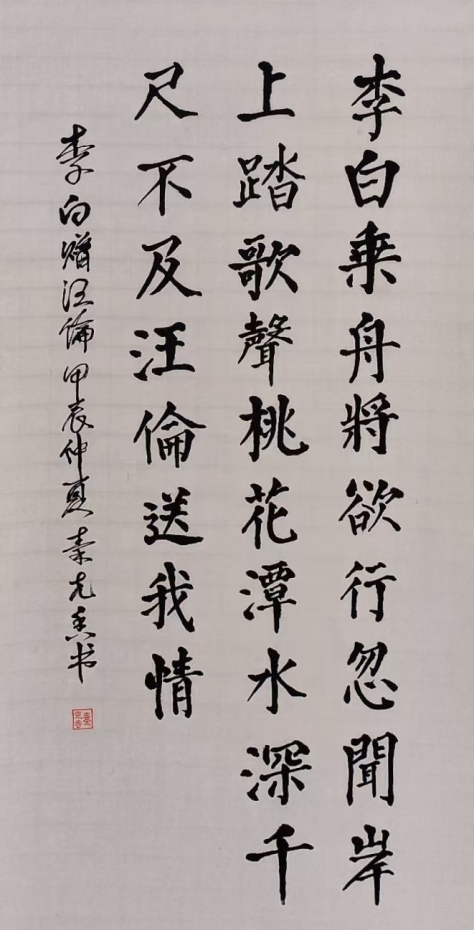 李白乗舟將欲行忽聞岸
上踏歌聲桃花潭水深千
尺不及汪倫送我情
李白赠汪倫甲辰仲夏秦克香书